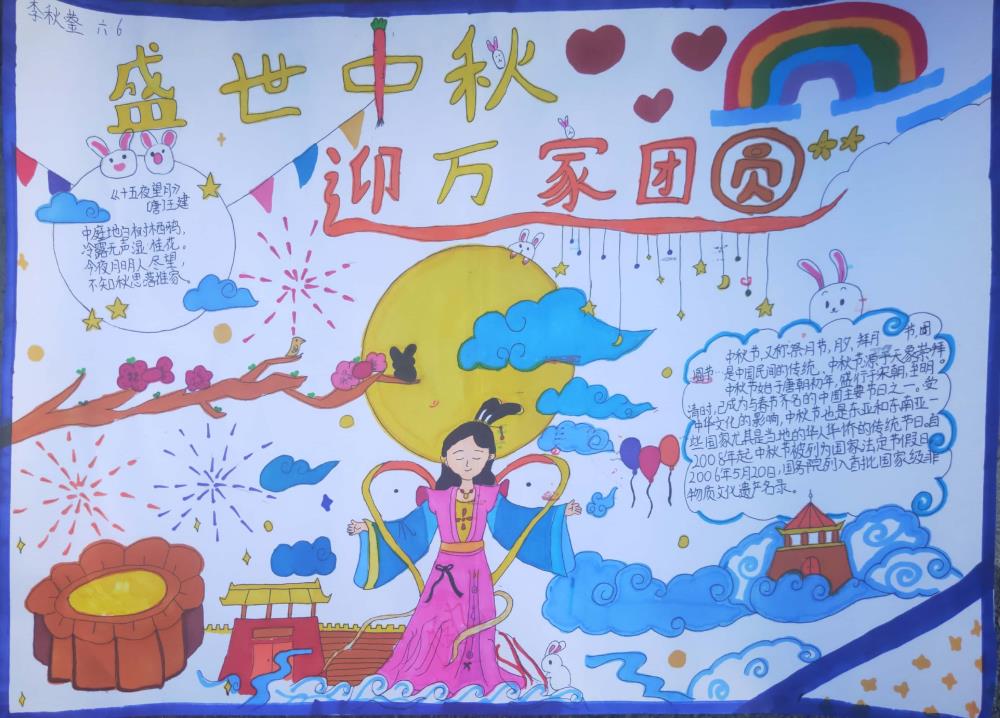 李秋蓥 六6
盛世中秋
迎万家团圆
《十五夜望月》
唐王建
中庭地白树栖鸦,
冷露无声湿桂花。
今夜月明人尽望,
不知秋思落谁家。
中秋节,又称祭月节,月夕,拜月 节,团
圆节 是中国民间的传统、中秋节源于天象崇拜
中秋节始于唐朝初年,盛行于宋朝,至明
清时,已成为与春节齐名的中国主要节日之一。受
中华文化的影响,中秋节也是东亚和东南亚一
些国家尤其是当地的华人华侨的传统节日。自
2008年起中秋节被列为国家法定节假日。
2006年5月20日,国务院列入首批国家级非
物质文化遗产名录。